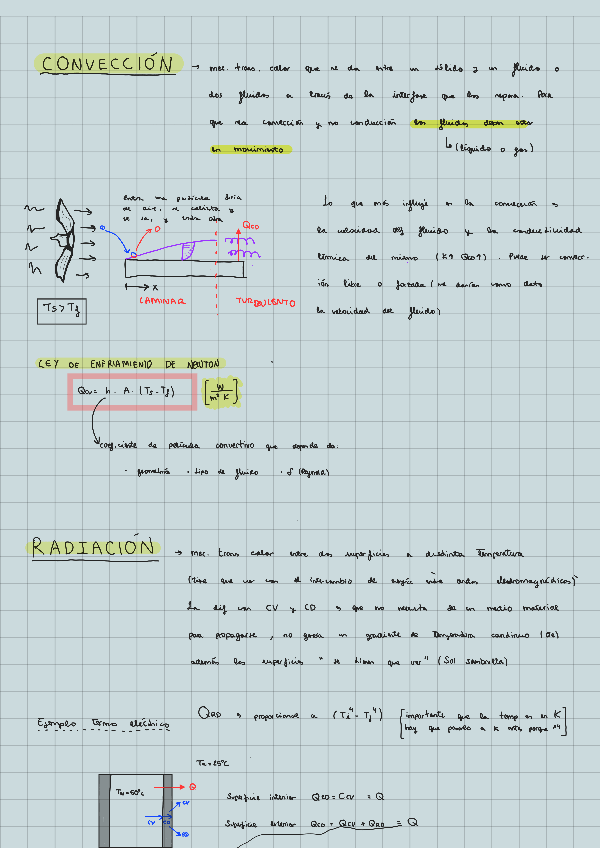 CONVECCIÓN → mec. trans. calor que se da entre un sólido y un fluido o
dos fluidos a través de la interfase que los separa. Para
que sea convección y no conducción los fluidos deben estar
en movimiento
↳ (líquido o gas)
Entra una partícula fría
de aire, se calienta y
se va, y entra otra
QCD
TS > Tf
x
LAMINAR
TURBULENTO
Lo que más influye en la convección es
la velocidad del fluido y la conductividad
térmica del mismo (K↑ QCD↑). Puede ser convec-
ión libre o forzada (me darían como dato
la velocidad del fluido)
LEY DE ENFRIAMIENTO DE NEWTON
QCV = h · A · (TS - Tf) [W/m² K]
coeficiente de película convectivo que depende de:
· geometría · tipo de fluido · (Reynolds)
RADIACIÓN → mec. trans calor entre dos superficies a distinta temperatura
(tiene que ver con el intercambio de energía entre ondas electromagnéticas)
La dif con CV y CD es que no necesita de un medio material
para propagarse, no genera un gradiente de temperatura continuo
además las superficies "se tienen que ver" (Sol sombrilla)
Ejemplo termo eléctrico
QRD es proporcional a (Ts⁴ - Tf⁴) [importante que la temp es en K
hay que pasarlo a K antes porque ^4]
T∞ = 25°C
TH = 60°C
Q
CV
CD
CV
RD
Superficie interior QCD = CCV = Q
Superficie exterior QCD = QCV + QRD = Q